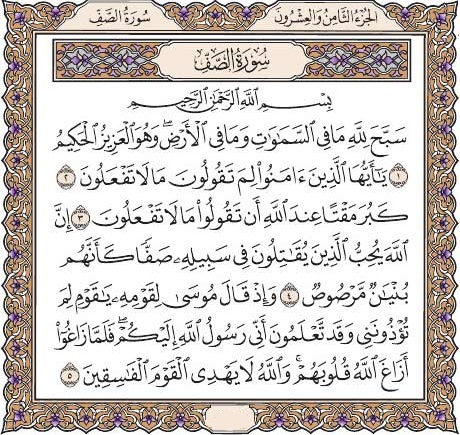 الجُزْءُ الثَّامِنُ وَالْعِشْرُونَ
سُورَةُ الصَّفِّ
سُورَةُ الصَّفِّ
بِسْمِ اللَّهِ الرَّحْمَٰنِ الرَّحِيمِ
سَبَّحَ لِلَّهِ مَا فِي السَّمَٰوَٰتِ وَمَا فِي الْأَرْضِ ۖ وَهُوَ الْعَزِيزُ الْحَكِيمُ
١ يَٰٓأَيُّهَا الَّذِينَ ءَامَنُوا لِمَ تَقُولُونَ مَا لَا تَفْعَلُونَ ٢
كَبُرَ مَقْتًا عِندَ اللَّهِ أَن تَقُولُوا مَا لَا تَفْعَلُونَ ٣ إِنَّ
اللَّهَ يُحِبُّ الَّذِينَ يُقَٰتِلُونَ فِي سَبِيلِهِۦ صَفًّا كَأَنَّهُم
بُنْيَٰنٌ مَّرْصُوصٌ ٤ وَإِذْ قَالَ مُوسَىٰ لِقَوْمِهِۦ يَٰقَوْمِ لِمَ
تُؤْذُونَنِي وَقَد تَّعْلَمُونَ أَنِّي رَسُولُ اللَّهِ إِلَيْكُمْ ۖ فَلَمَّا زَاغُوٓا
أَزَاغَ اللَّهُ قُلُوبَهُمْ ۚ وَاللَّهُ لَا يَهْدِي الْقَوْمَ الْفَٰسِقِينَ ٥